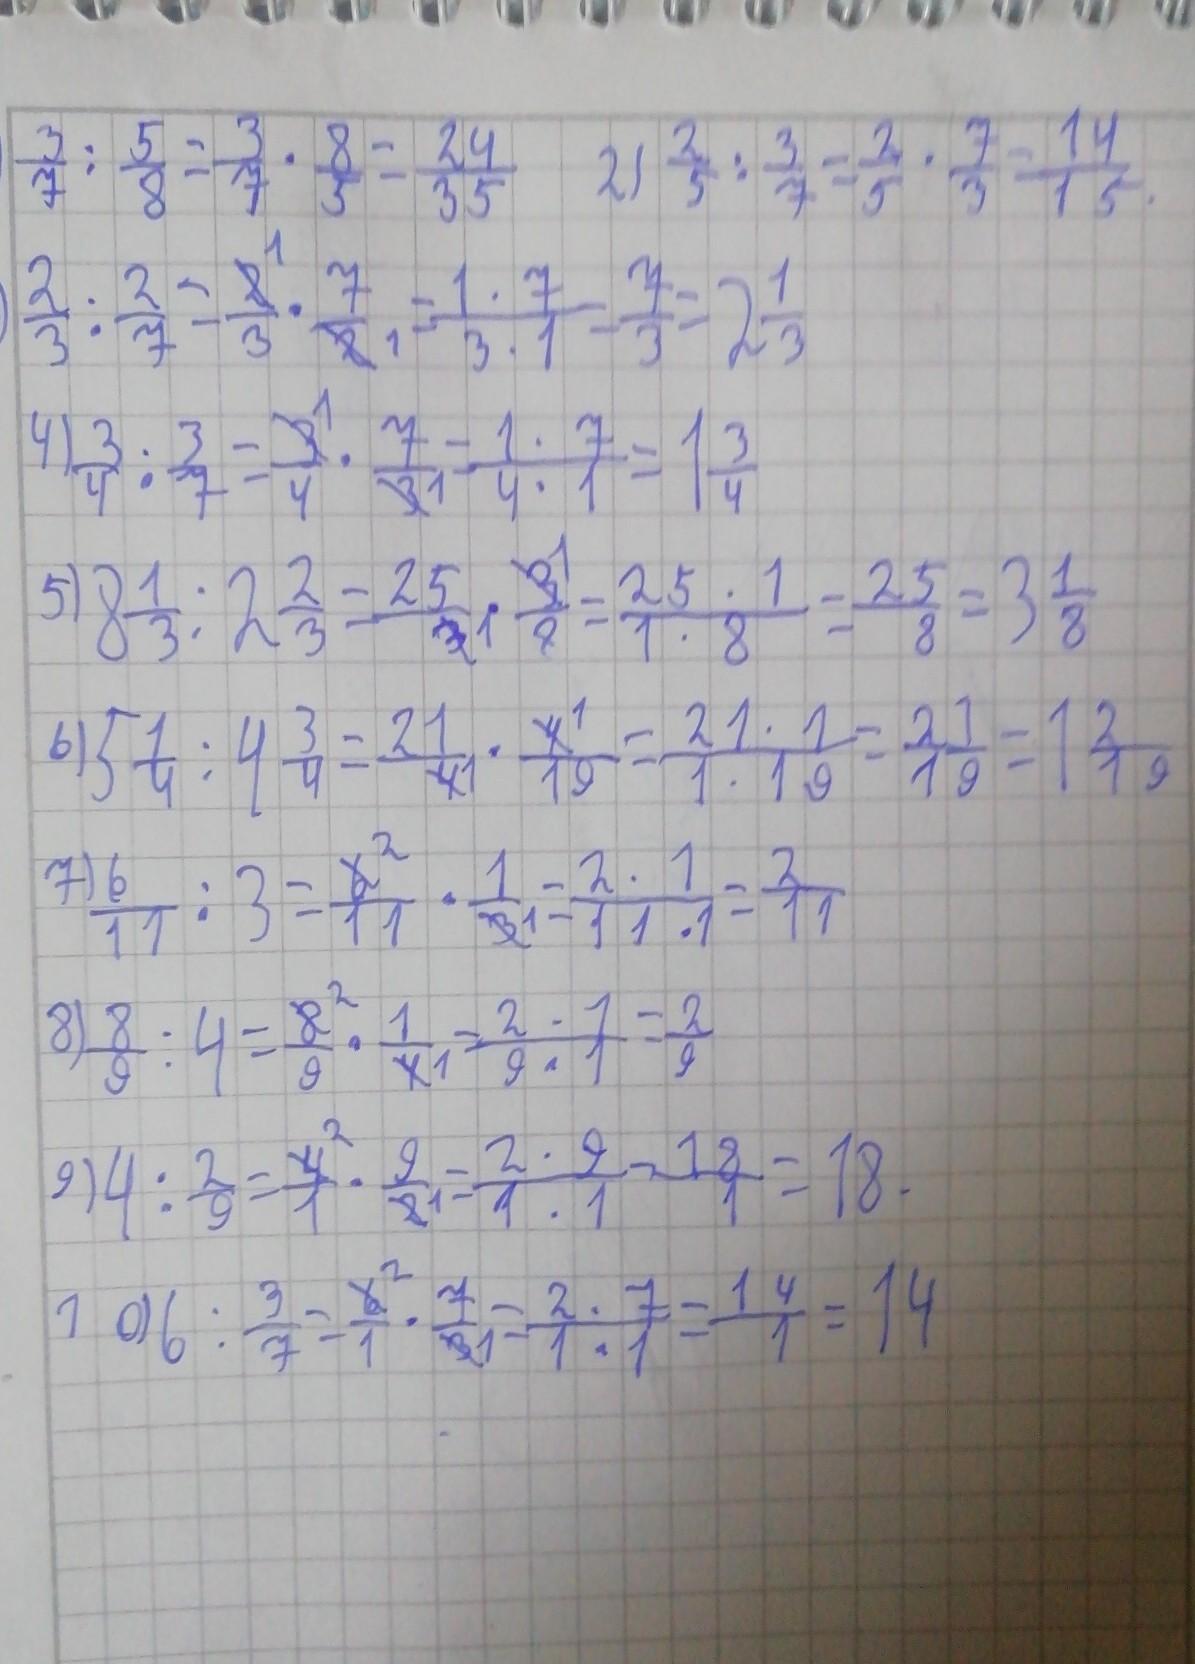 ) 3/7 : 5/8 = 3/7 · 8/5 = 24/35 2) 2/5 : 3/7 = 2/5 · 7/3 = 14/15.
) 2/3 : 2/7 = 2¹/3 · 7/2₁ = 1·7/3·1 = 7/3 = 2 1/3
4) 3/4 : 3/7 = 3¹/4 · 7/3₁ = 1·7/4·1 = 1 3/4
5) 8 1/3 : 2 2/3 = 25/3₁ · 3¹/8 = 25·1/1·8 = 25/8 = 3 1/8
6) 5 1/4 : 4 3/4 = 21/4₁ · 4¹/19 = 21·1/1·19 = 21/19 = 1 2/19
7) 6/11 : 3 = 6²/11 · 1/3₁ = 2·1/11·1 = 2/11
8) 8/9 : 4 = 8²/9 · 1/4₁ = 2·1/9·1 = 2/9
9) 4 : 2/9 = 4²/1 · 9/2₁ = 2·9/1·1 = 18/1 = 18.
10) 6 : 3/7 = 6²/1 · 7/3₁ = 2·7/1·1 = 14/1 = 14